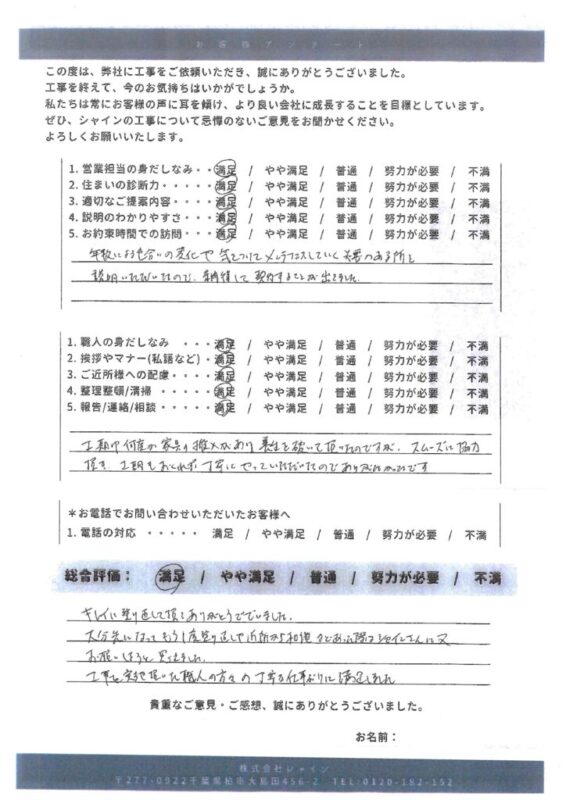 お客様アンケート
この度は、弊社に工事をご依頼いただき、誠にありがとうございました。
工事を終えて、今のお気持ちはいかがでしょうか。
私たちは常にお客様の声に耳を傾け、より良い会社に成長することを目標としています。
ぜひ、シャインの工事について忌憚のないご意見をお聞かせください。
よろしくお願いいたします。
1. 営業担当の身だしなみ・・満足 / やや満足 / 普通 / 努力が必要 / 不満
2. 住まいの診断力・・・・・満足 / やや満足 / 普通 / 努力が必要 / 不満
3. 適切なご提案内容・・・・満足 / やや満足 / 普通 / 努力が必要 / 不満
4. 説明のわかりやすさ・・・満足 / やや満足 / 普通 / 努力が必要 / 不満
5. お約束時間での訪問・・・満足 / やや満足 / 普通 / 努力が必要 / 不満
年数による色合いの変化や 気をつけてメンテナンスしていく必要のある所を
説明いただいたので、納得して契約することが出来ました。
1. 職人の身だしなみ ・・・満足 / やや満足 / 普通 / 努力が必要 / 不満
2. 挨拶やマナー(私語など)・満足 / やや満足 / 普通 / 努力が必要 / 不満
3. ご近所様への配慮・・・・満足 / やや満足 / 普通 / 努力が必要 / 不満
4. 整理整頓/清掃 ・・・・満足 / やや満足 / 普通 / 努力が必要 / 不満
5. 報告/連絡/相談・・・・満足 / やや満足 / 普通 / 努力が必要 / 不満
工期中何度か家具の搬入があり 養生を破いて頂いたのですが、スムーズに協力
頂き 工期もおくれず丁寧にやっていただいたのでありがたかったです
＊お電話でお問い合わせいただいたお客様へ
1. 電話の対応 ・・・・・ 満足 / やや満足 / 普通 / 努力が必要 / 不満
総合評価： 満足 / やや満足 / 普通 / 努力が必要 / 不満
キレイに塗り直して頂きありがとうございました。
大分先になってもう1度塗り直しや近所から相談などあった際はシャインさんに又
お願いしようと思えました。
工事を実施頂いた職人の方々の丁寧な仕事ぶりに満足しました
貴重なご意見・ご感想、誠にありがとうございました。
お名前：
株式会社シャイン
〒277-0922千葉県柏市大島田456-2 TEL:0120-182-152